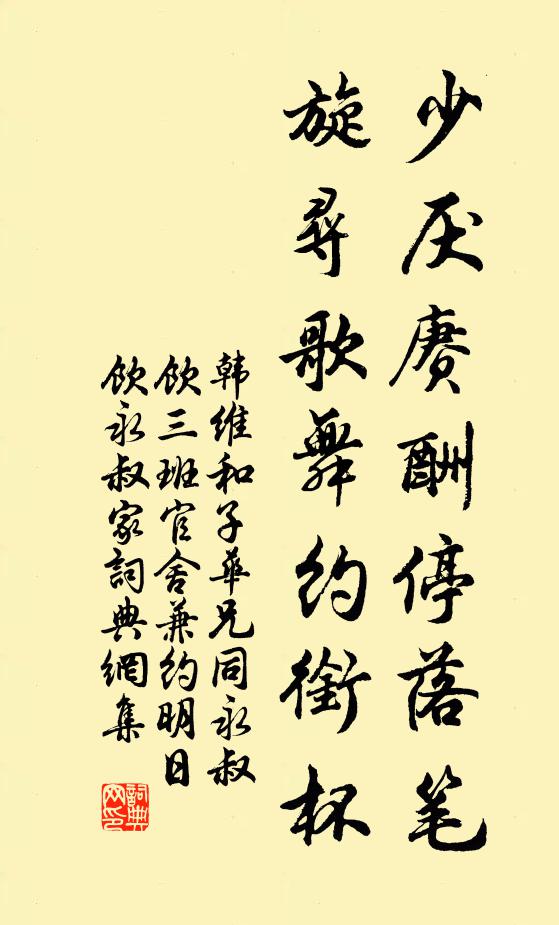 少厌赓酬停落笔
旋寻歌舞约衔杯
韩维和子华兄同永叔
饮三班官舍兼约明日
饮永叔家词典网集
词典网印